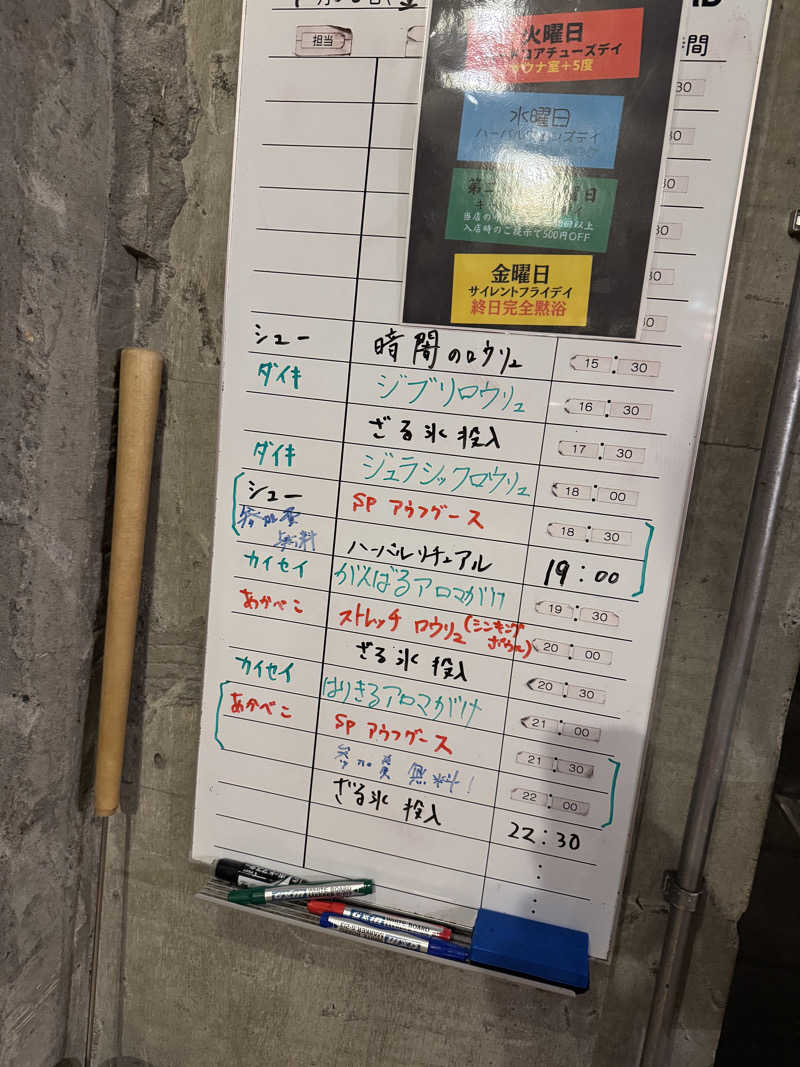 担当
間
火曜日
サウナ室+5度
水曜日
入店時のご提示で500円OFF
金曜日
サイレントフライデイ
終日完全黙浴
30
30
30
30
30
30
シュー 暗闇のロウリュ 15:30
ダイキ ジブリロウリュ 16:30
ざる氷投入 17:30
ダイキ ジュラシックロウリュ 18:00
シュー SPアウフグース 18:30
参加費
無料
ハーバルリチュアル 19:00
カイセイ がんばるアロマがけ 19:30
あかべこ ストレッチロウリュ(シンキングボウル) 20:00
ざる氷投入 20:30
カイセイ はりきるアロマがけ 21:00
あかべこ SPアウフグース 21:30
参加費無料! 22:00
ざる氷投入 22:30
:
:
WHITE BOARD
WHITE BOARD